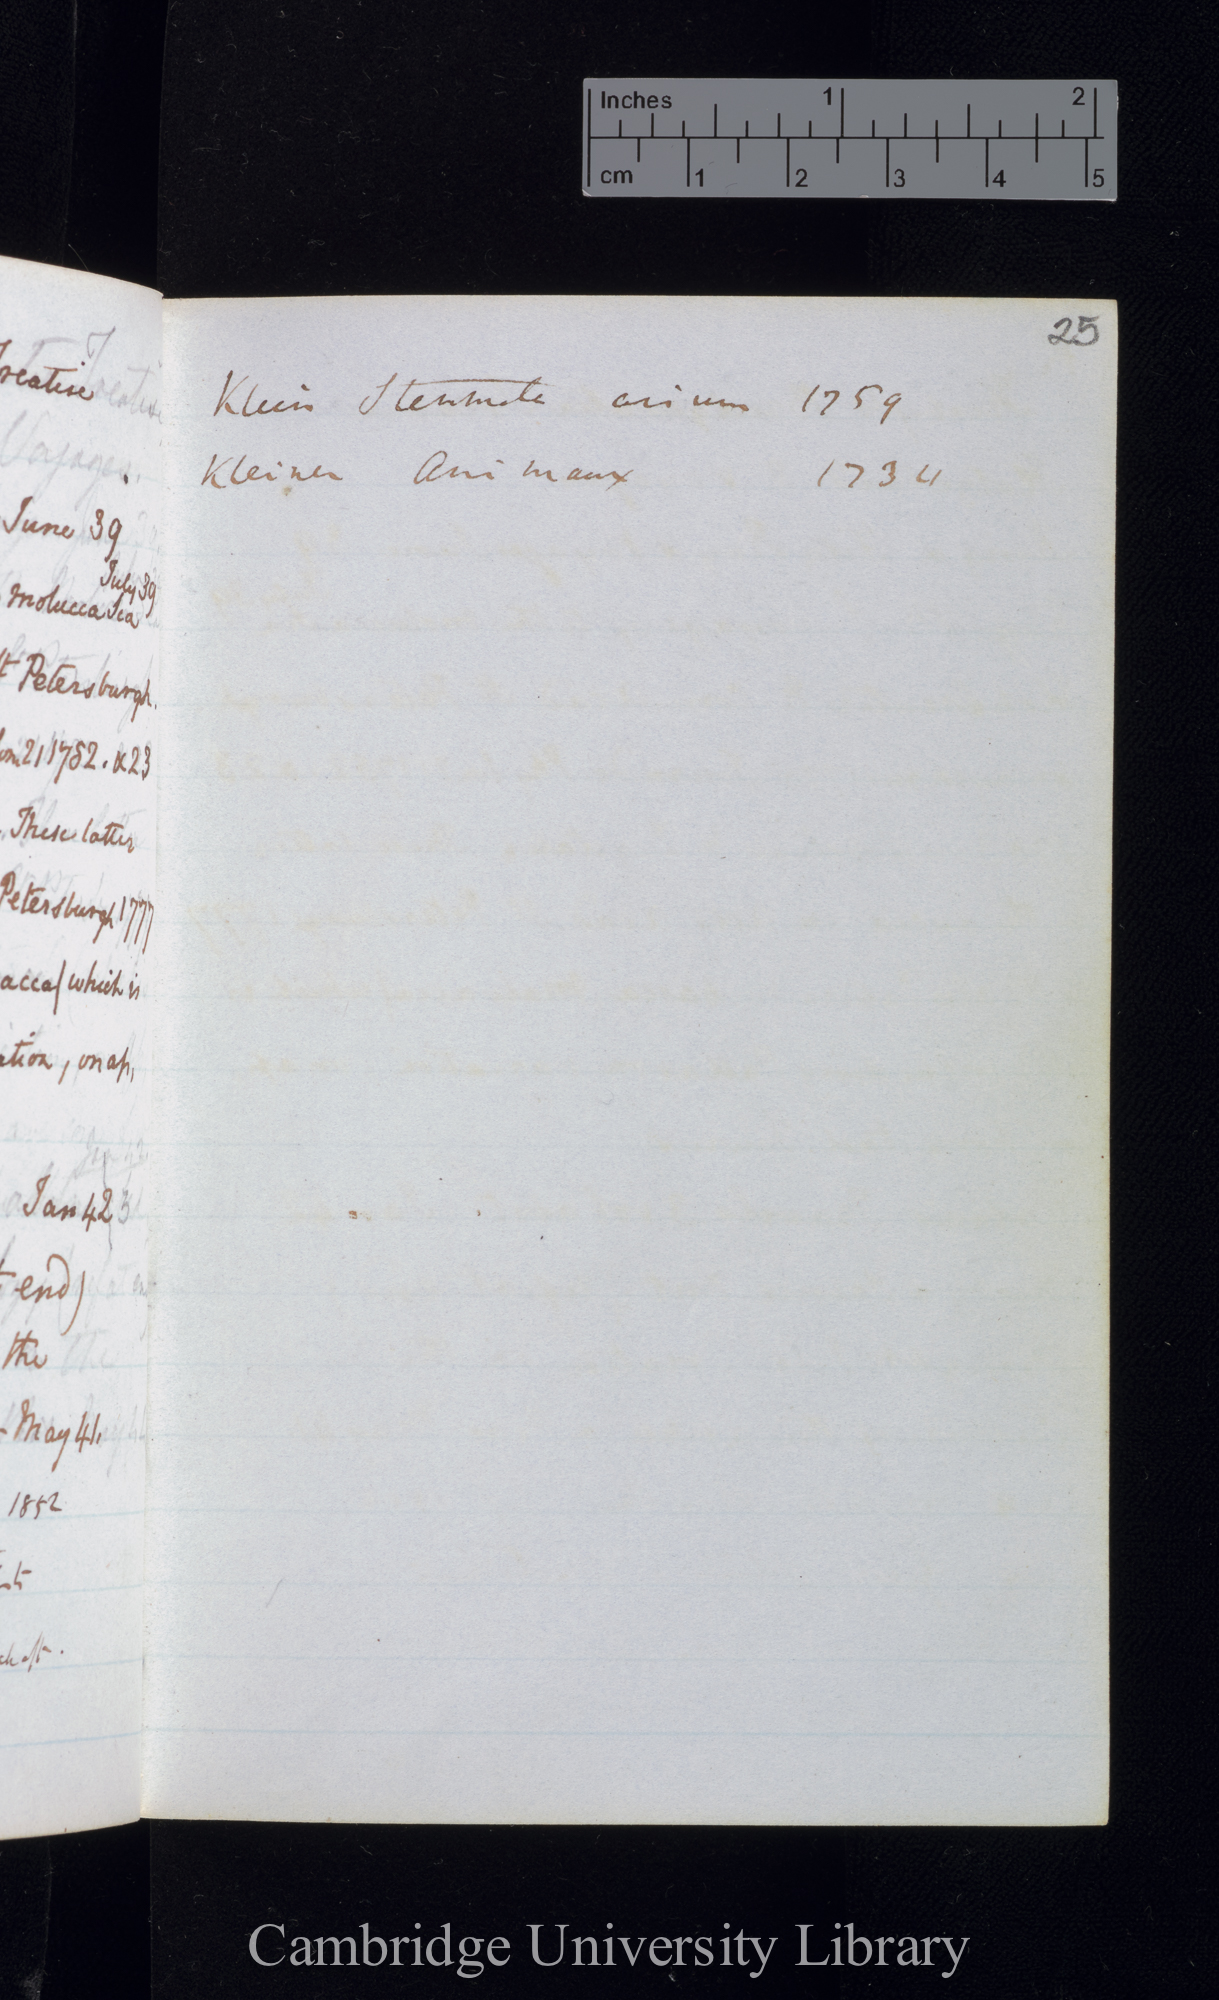 Inches 1 2
cm 1 2 3 4 5
Treatise
Voyages.
June 39
July 39
Molucca Sea
St Petersburgh.
21 1752. & 23
These latter
Petersburgh 1777
acca( which is
ation, on ap,
Jan 42
t end)
the
May 41
1852
25
Klein Stemmata avium 1759
Kleiner Animaux 1734
Cambridge University Library